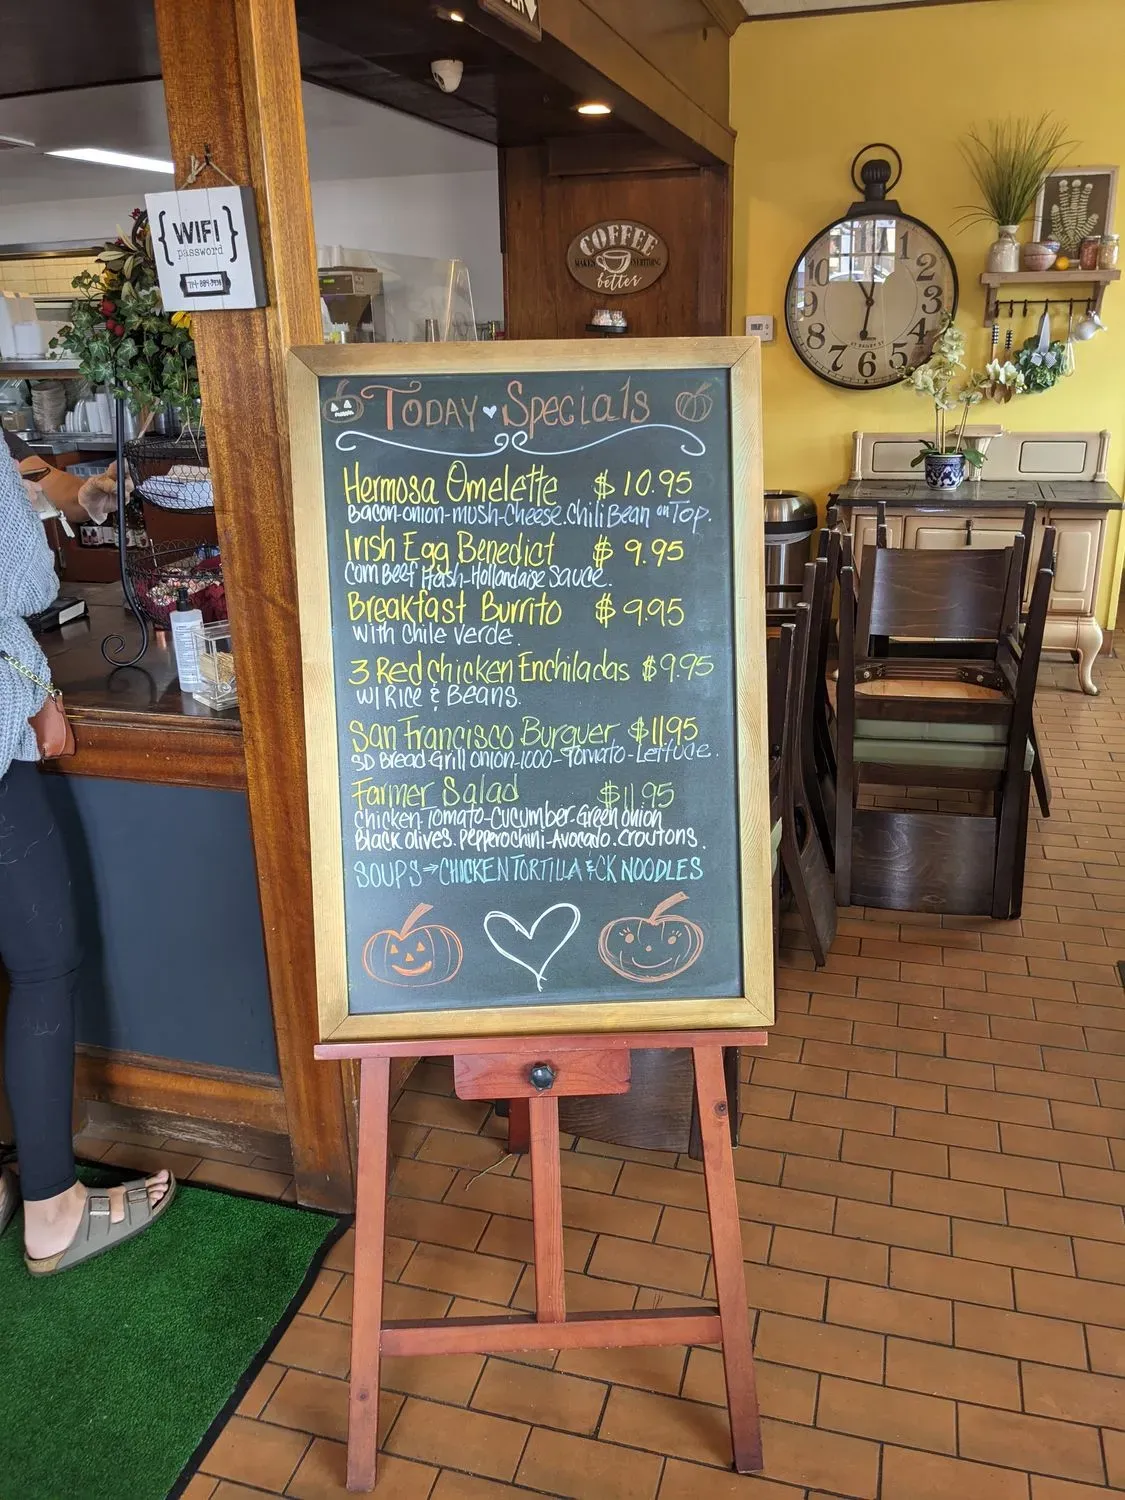 { WIFI }
password
COFFEE
MAKES EVERYTHING
better
1
2
3
5
6
7
8
9
10
TODAY Specials
Hermosa Omelette $10.95
Bacon-onion-mush-cheese. Chili Bean on Top.
Irish Egg Benedict $9.95
Corn Beef Hash-Hollandaise Sauce.
Breakfast Burrito $9.95
with Chile Verde.
3 Red Chicken Enchiladas $9.95
w/ Rice & Beans.
San Francisco Burguer $11.95
SD Bread-Grill onion-1000-Tomato-Lettuce.
Farmer Salad $11.95
Chicken-Tomato-Cucumber-Green onion
Black olives. Pepperochini-Avocado. croutons.
SOUPS → CHICKEN TORTILLA & CK NOODLES